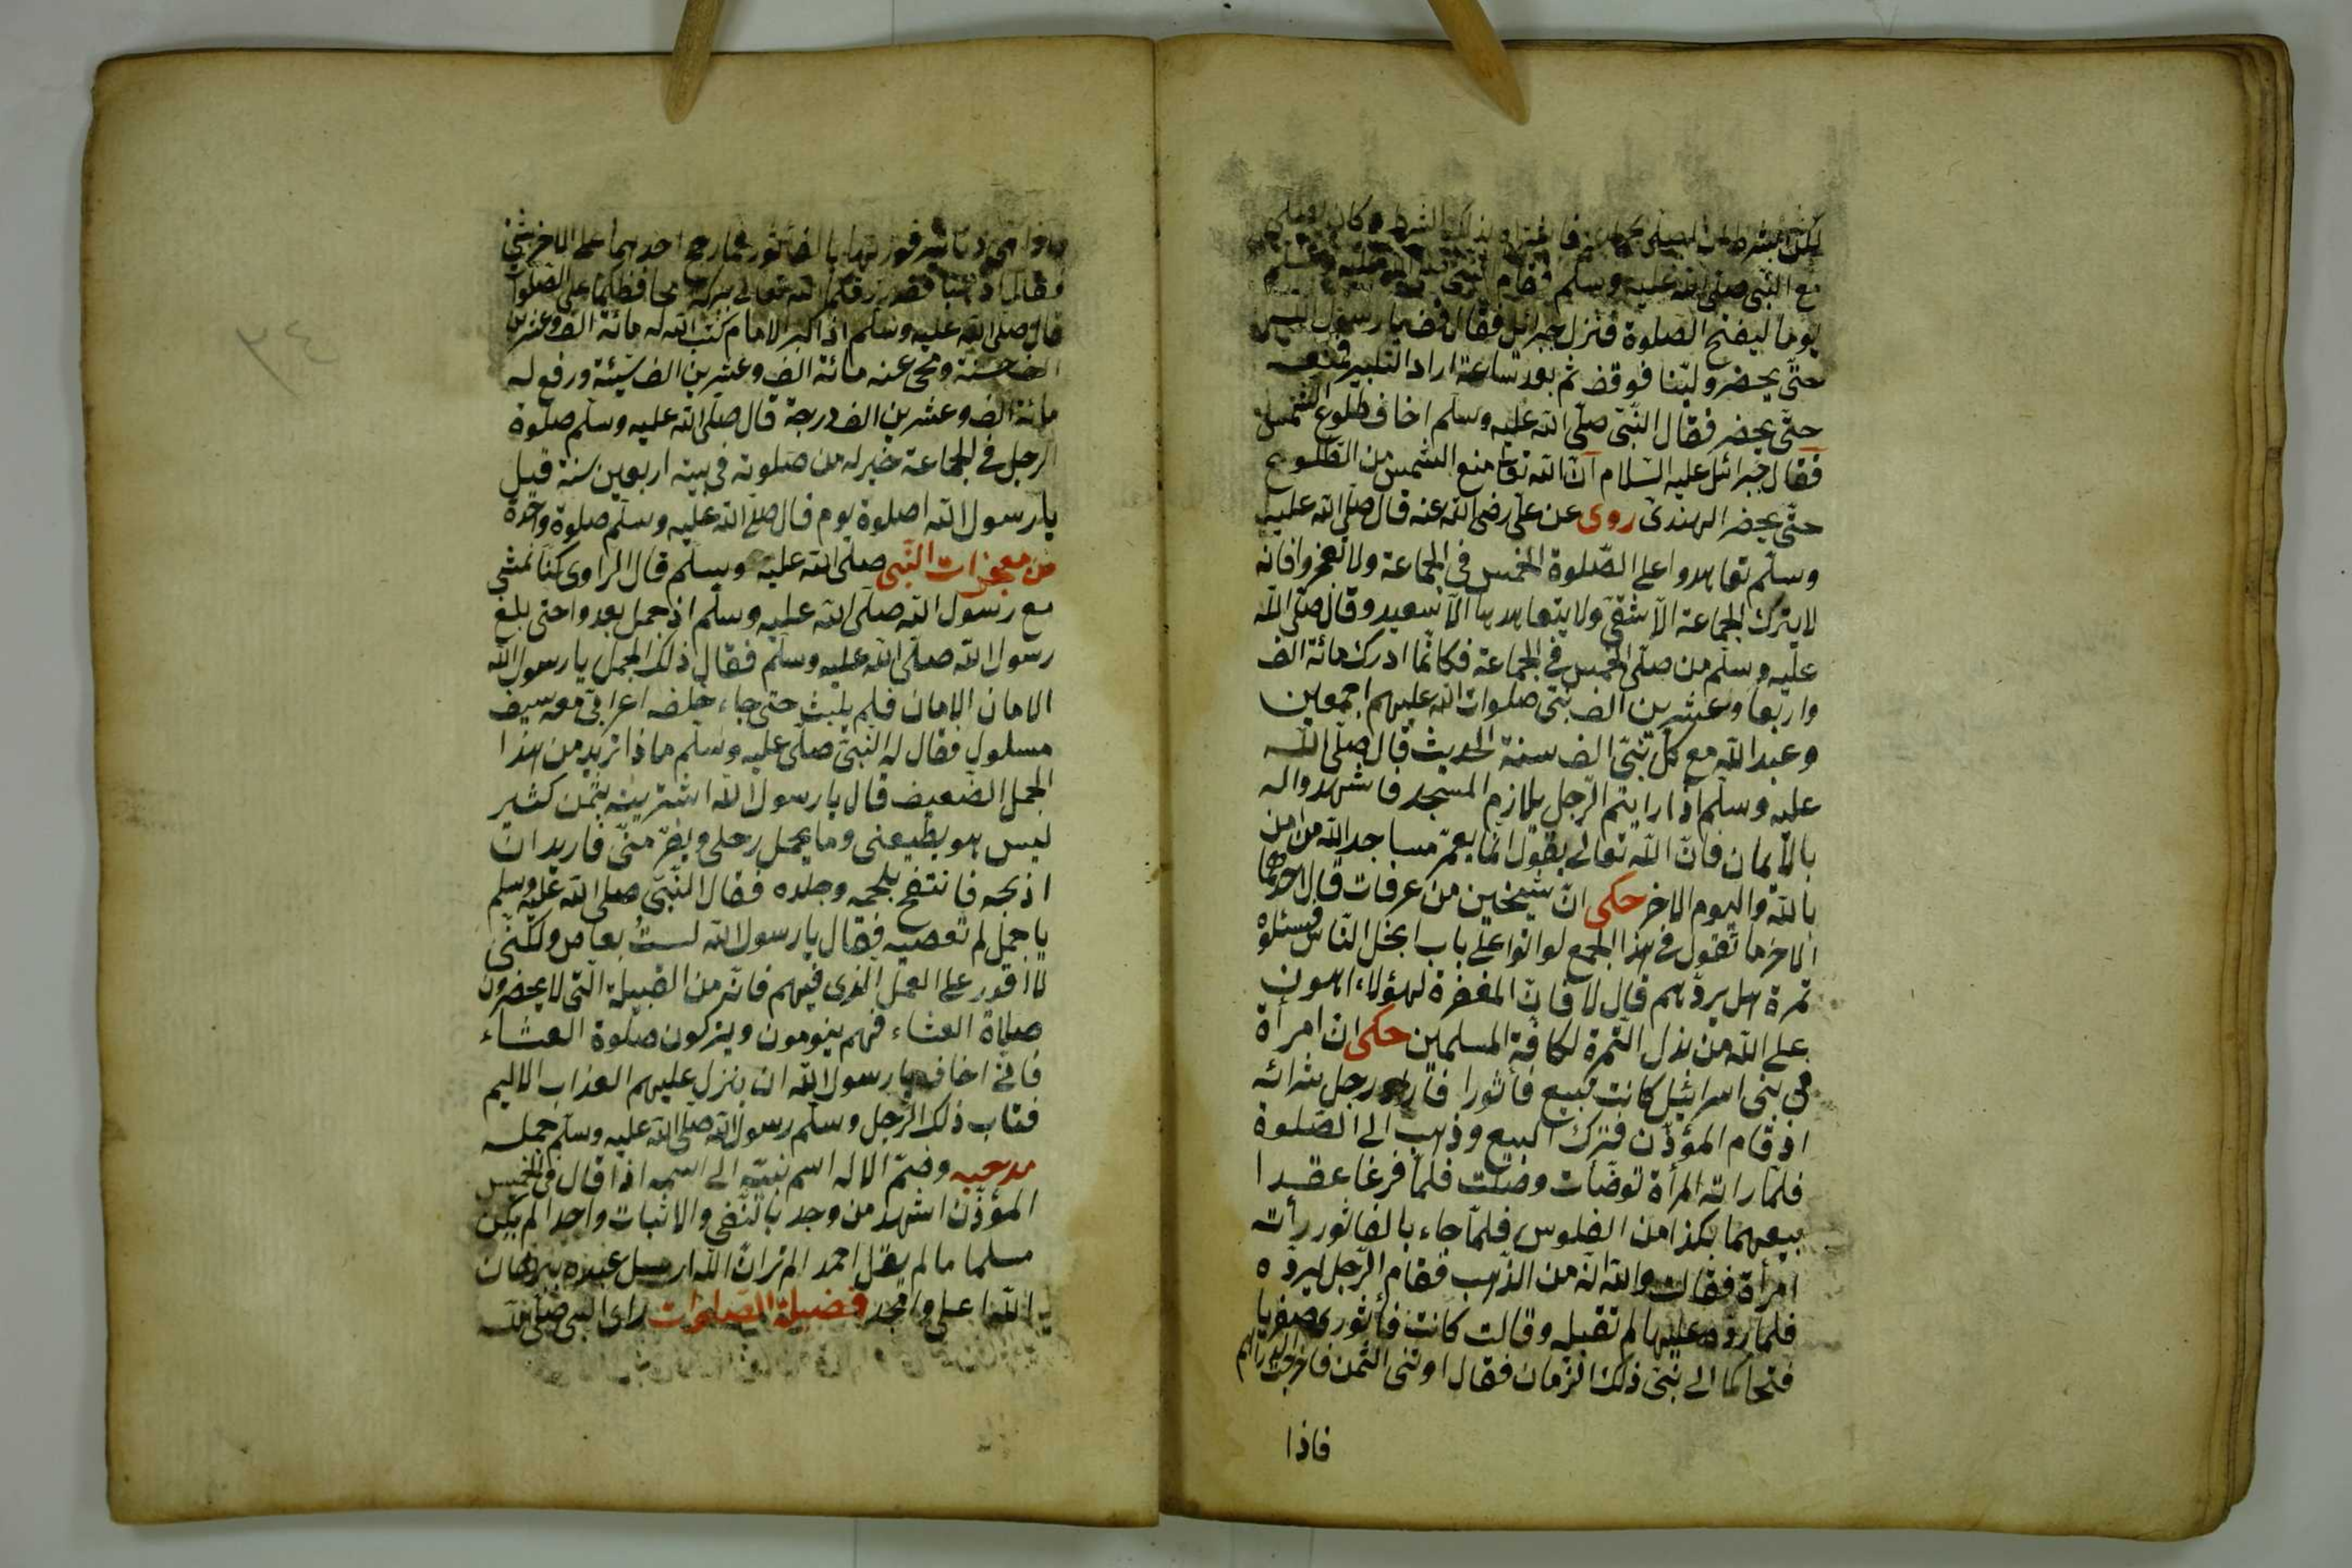 لكن بشرط ان اصلى بجماعة فاشتراه بذلك الشرط وكان يصلى
مع النبى صلى الله عليه وسلم فقام النبى صلى الله عليه وسلم
يوما ليفتح الصلوة فنزل جبرائل فقال قف يا رسول الله
حتى يحضر ولينا فوقف ثم بعد ساعة اراد التكبير فمنعه
حتى يحضر فقال النبى صلى الله عليه وسلم اخاف طلوع الشمس
فقال جبرائل عليه السلام ان الله تعا منع الشمس من الطلوع
حتى يحضر الهندى روى عن على رضى الله عنه قال صلى الله عليه
وسلم تعاهدوا على الصلوة الخمس فى الجماعة ولا تعجزوا فانه
لا يترك الجماعة الا شقى ولا يتعاهدها الا سعيد وقال صلى الله
عليه وسلم من صلى الخمس فى الجماعة فكانما ادرك مائة الف
واربعا وعشرين الف نبى صلوات الله عليهم اجمعين
وعبد الله مع كل نبى الف سنة الحديث قال صلى الله
عليه وسلم اذا رايتم الرجل يلازم المسجد فاشهدوا له
بالايمان فان الله تعالى يقول انما يعمر مساجد الله من امن
بالله واليوم الاخر حكى ان شيخين من عرفات قال احدهما
الاخر ما تقول فى هذا الجمع لو اتوا على باب ابخل الناس فسئلوه
تمرة هل يردهم قال لا فان المغفرة لهؤلاء اهون
على الله من بذل التمرة لكافة المسلمين حكى ان امرأة
فى بنى اسرائيل كانت تبيع فاثورا فاراد رجل شرائه
اذ قام المؤذن فترك البيع وذهب الى الصلوة
فلما راته المرأة توضأت وصلت فلما فرغا عقدا
بيعهما بكذا من الفلوس فلما جاء بالفاثور رأت
امرأة فقالت والله انه من الذهب فقام الرجل ليرده
فلما رده عليها لم تقبله وقالت كانت فاثورى صفريا
فتحاكما الى نبى ذلك الزمان فقال اوتنى الثمن فاخرجت الدراهم
فاذا
فاذا هى دنانير فوزنها بالفاثور فما رجح احدهما على الاخر شئ
فقال اذهبا فقد رزقكما الله تعالى ببركة محافظتكما على الصلوات
قال صلى الله عليه وسلم اذا كبر الامام كتب الله له مائة الف وعشرين
الف حسنة ومحى عنه مائة الف وعشرين الف سيئة ورفع له
مائة الف وعشرين الف درجة قال صلى الله عليه وسلم صلوة
الرجل فى الجماعة خير له من صلوته فى بيته اربعين سنة قيل
يا رسول الله اصلوة يوم قال صلى الله عليه وسلم صلوة واحدة
من معجزات النبى صلى الله عليه وسلم قال الراوى كنا نمشى
مع رسول الله صلى الله عليه وسلم اذ جمل يعدوا حتى بلغ
رسول الله صلى الله عليه وسلم فقال ذلك الجمل يا رسول الله
الامان الامان فلم يلبث حتى جاء خلفه اعرابى معه سيف
مسلول فقال له النبى صلى عليه وسلم ماذا تريد من هذا
الجمل الضعيف قال يا رسول الله اشتريته بثمن كثير
ليس هو يطيعنى وما يحمل رحلى ويفر منى فاريد ان
اذبحه فانتفع بلحمه وجلده فقال النبى صلى الله عليه وسلم
يا جمل لم تعصيه فقال يا رسول الله لست بعاص ولكنى
لا اقدر على العمل الذى فيهم فانه من القبيلة التى لا يحضرون
صلاة العشاء فهم ينومون ويتركون صلوة العشاء
فانى اخاف يا رسول الله ان ينزل عليهم العذاب الاليم
فتاب ذلك الرجل وسلم رسول الله صلى الله عليه وسلم جمله
مدحيه وضم الاله اسم نبيه الى اسمه اذا قال فى الخمس
المؤذن اشهد من وجد بالنفى والاثبات واحدا لم يكن
مسلما ما لم يقل احمد الم تر ان الله ارسل عبده ببرهان
الله اعلى وامجد فضيلة الصلوات راى النبى صلى الله